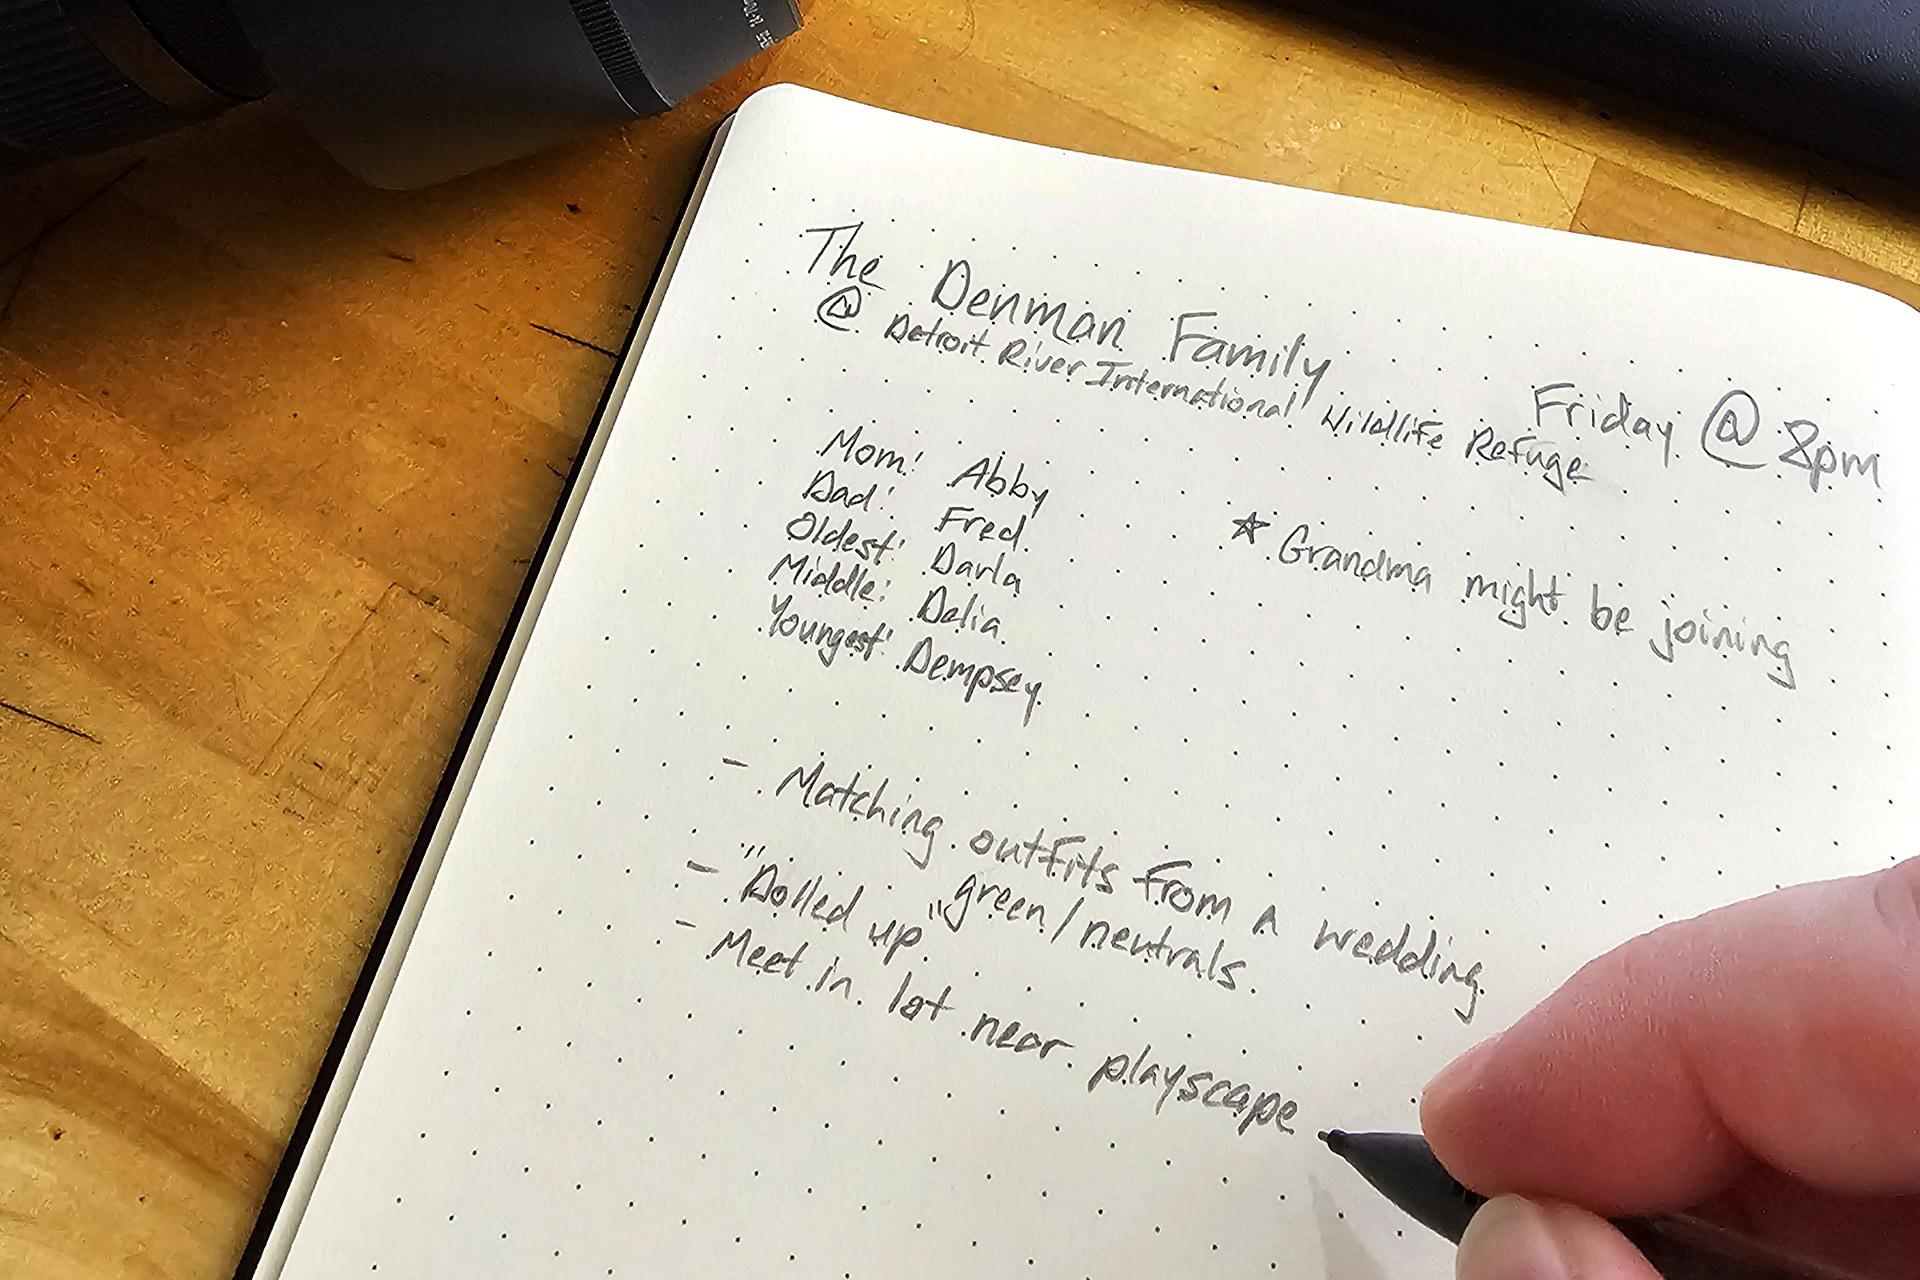 The Denman Family
@ Detroit River International Wildlife Refuge
Friday @ 8pm
Mom: Abby
Dad: Fred
Oldest: Darla
Middle: Delia
Youngest: Dempsey
☆ Grandma might be joining
- Matching outfits from a wedding
green/neutrals
- "Dolled up"
- Meet in lot near playscape